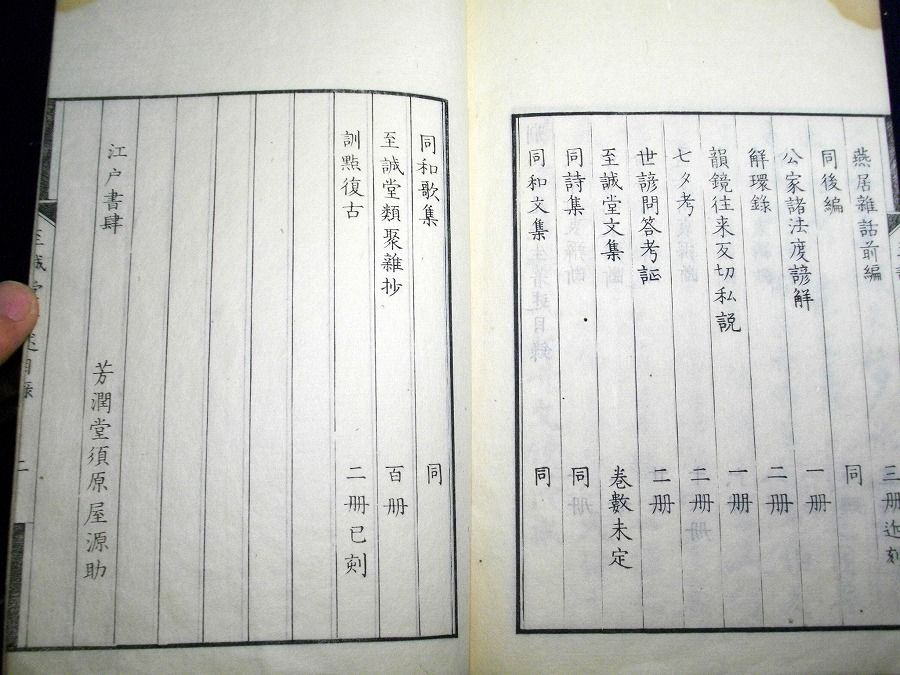 燕居雜話前編 三册近刻
同後編 同
公家諸法度諺解 一册
解環錄 二册
韻鏡往来反切私説 一册
七夕考 二册
世諺問答考証 二册
至誠堂文集 卷數未定
同詩集 同
同和文集 同
同和歌集 同
至誠堂類聚雜抄 百册
訓點復古 二册已刻
江户書肆 芳潤堂須原屋源助